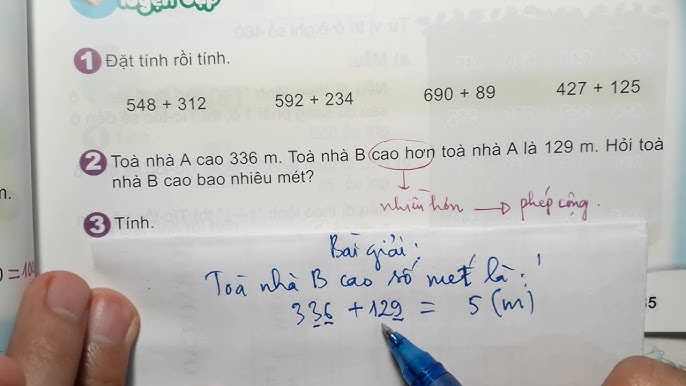 Luyện tập
1 Đặt tính rồi tính.
548 + 312 592 + 234 690 + 89 427 + 125
2 Toà nhà A cao 336 m. Toà nhà B cao hơn toà nhà A là 129 m. Hỏi toà
nhà B cao bao nhiêu mét?
nhiều hơn → phép cộng.
3 Tính.
Bài giải:
Toà nhà B cao số mét là:
336 + 129 = 5 (m)